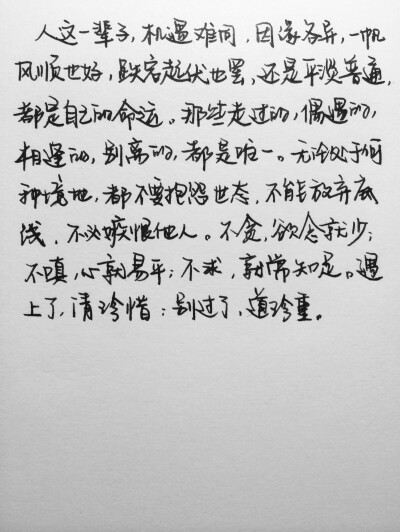 人这一辈子,机遇难同,因缘各异,一帆
风顺也好,跌宕起伏也罢,还是平淡普通,
都是自己的命运。那些走过的,偶遇的,
相逢的,别离的,都是唯一。无论处于何
种境地,都不要抱怨世态,不能放弃底
线,不必嫉恨他人。不贪,欲念就少;
不嗔,心就易平;不求,就常知足。遇
上了,请珍惜;别过了,道珍重。